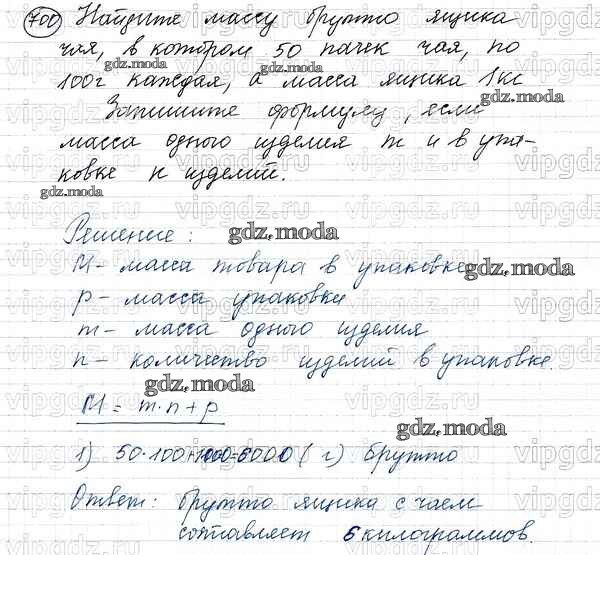 700 Найдите массу брутто ящика
чая, в котором 50 пачек чая, по
gdz.moda gdz.moda
100г каждая, а масса ящика 1кг
gdz.moda
Запишите формулу, если
масса одного изделия m и в упа-
ковке n изделий.
gdz.moda
Решение: gdz.moda
M - масса товара в упаковке gdz.moda
p - масса упаковки
m - масса одного изделия
n - количество изделий в упаковке.
gdz.moda
M = m·n+p
gdz.moda
1) 50·100+1000=6000 (г) брутто
Ответ: брутто ящика с чаем
составляет 6 килограммов.
vipgdz.ru